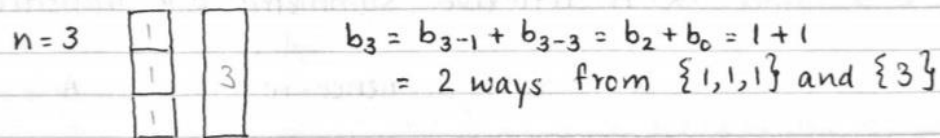 n = 3
1
1
1
3
b₃ = b₃₋₁ + b₃₋₃ = b₂ + b₀ = 1 + 1
= 2 ways from {1,1,1} and {3}